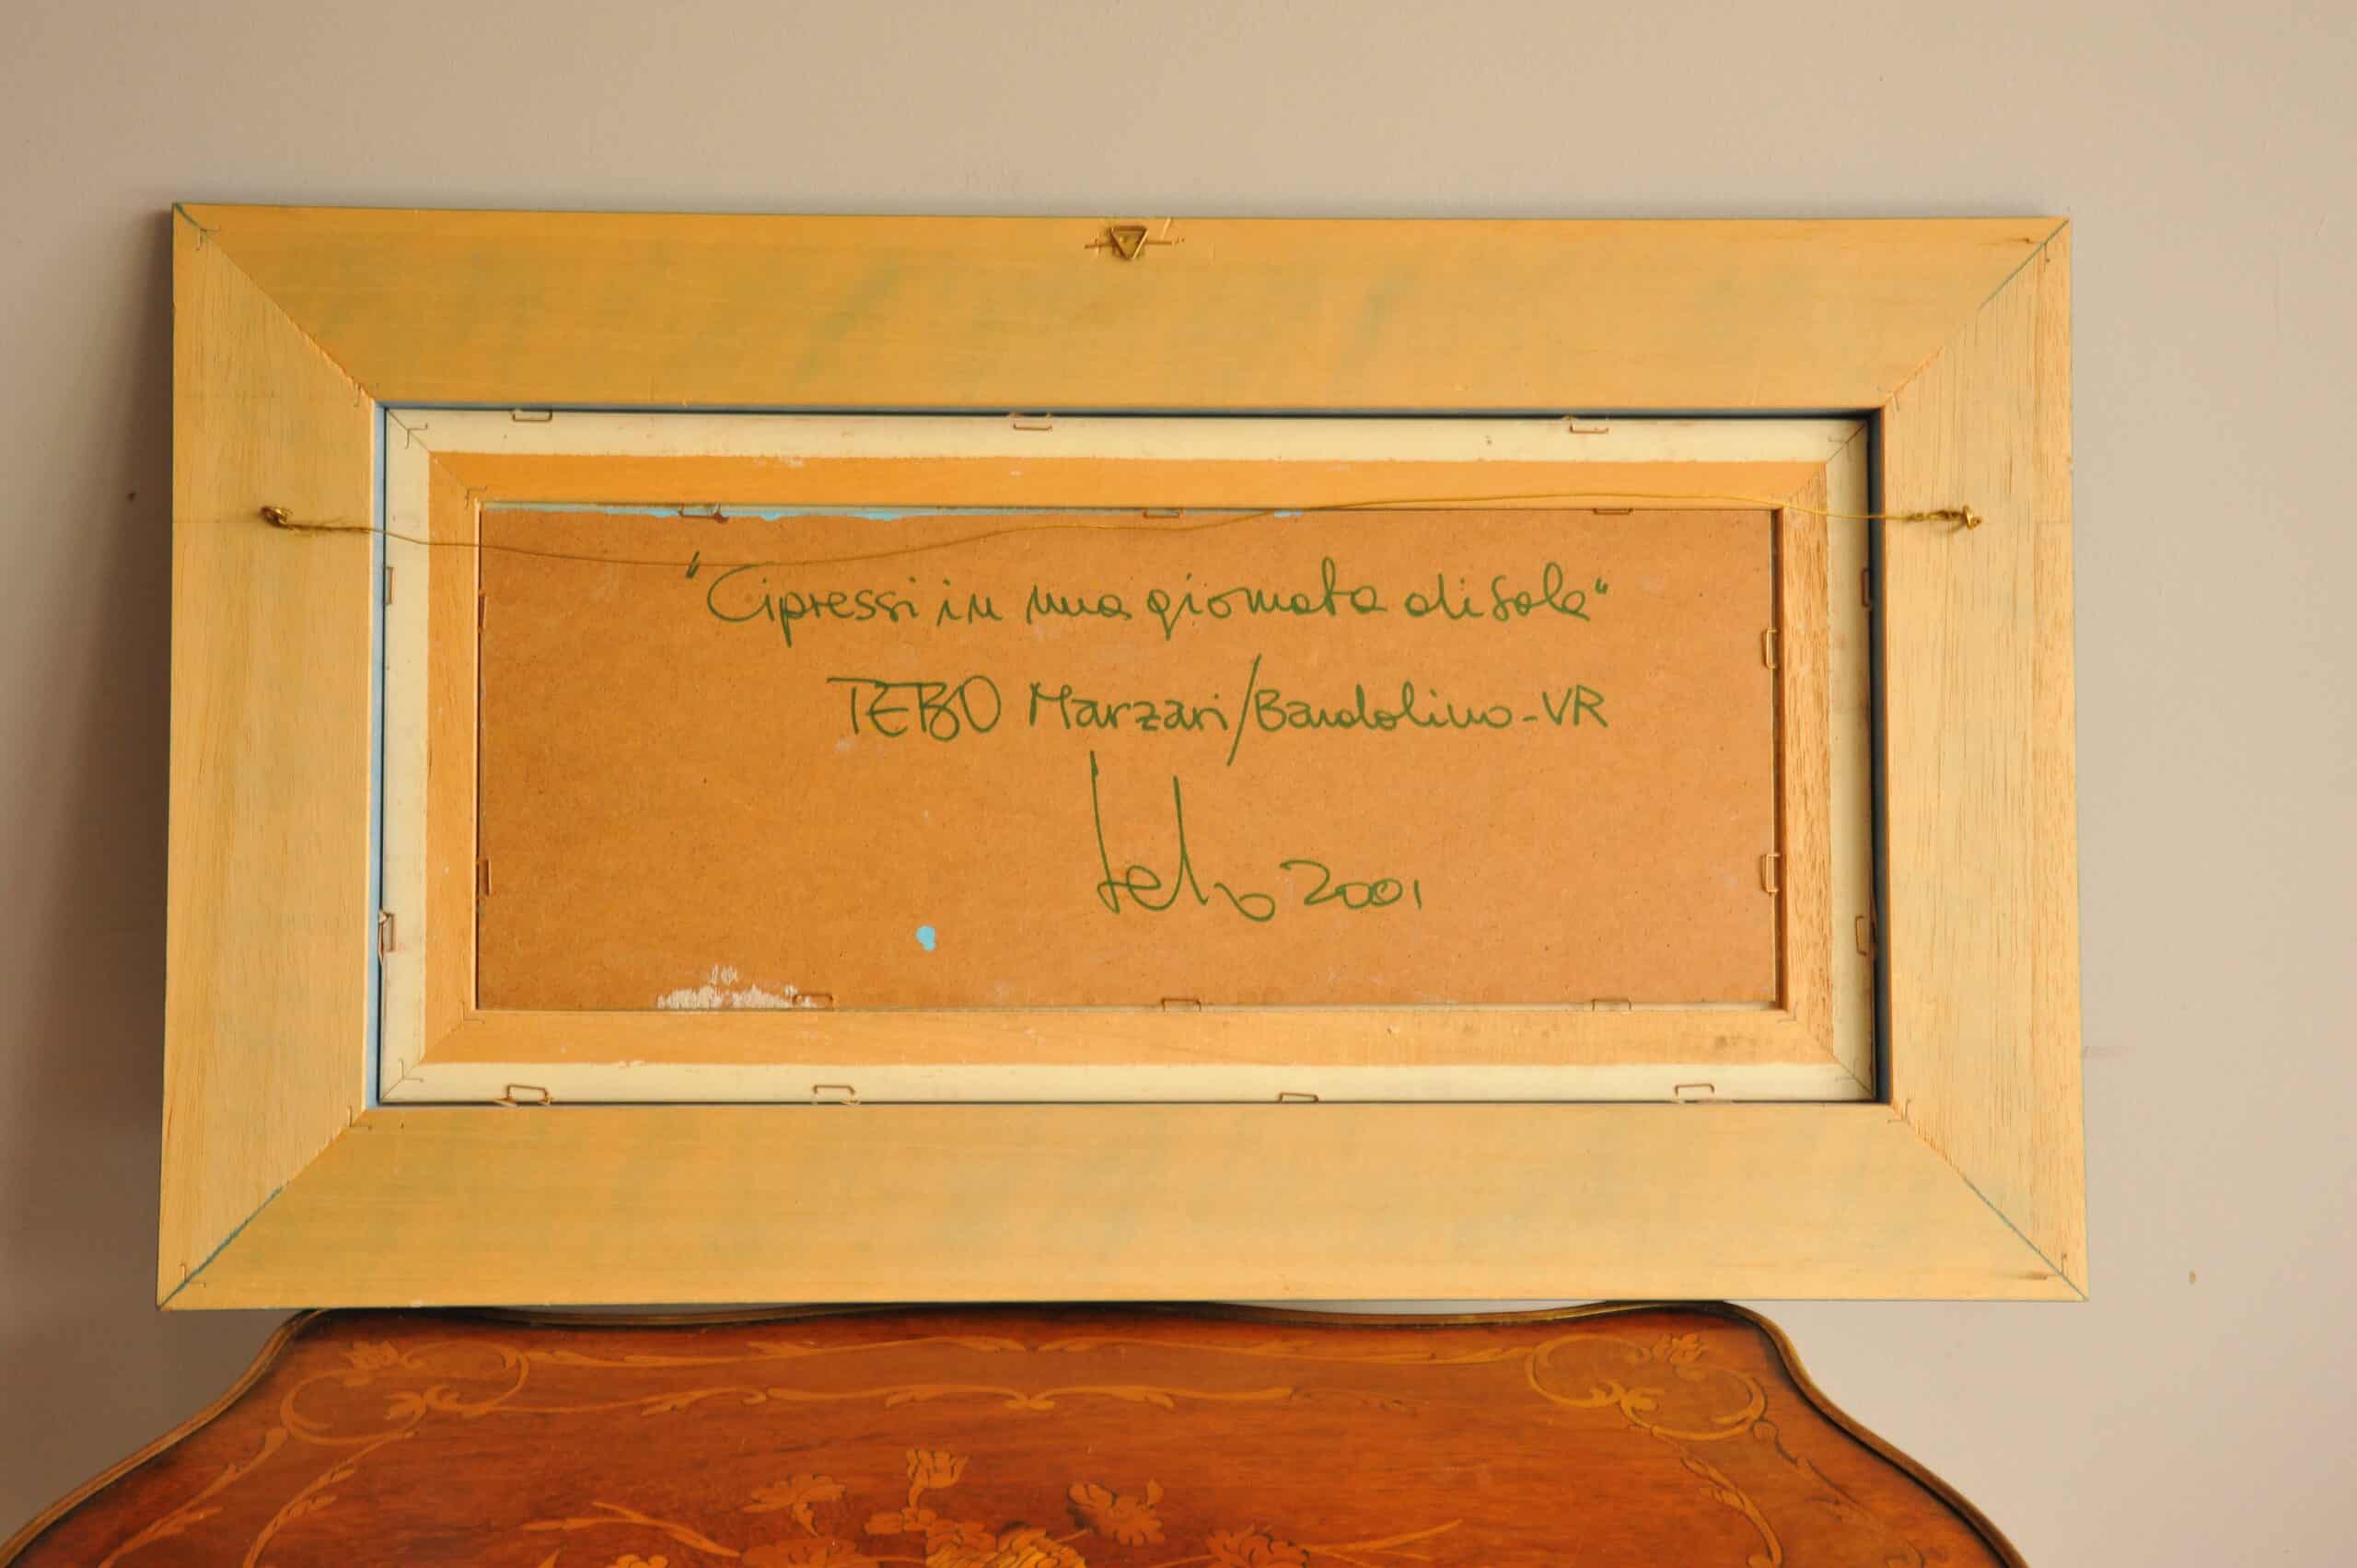 "Cipressi in una giornata di sole"
TEBO Marzari/Bardolino-VR
tebo 2001